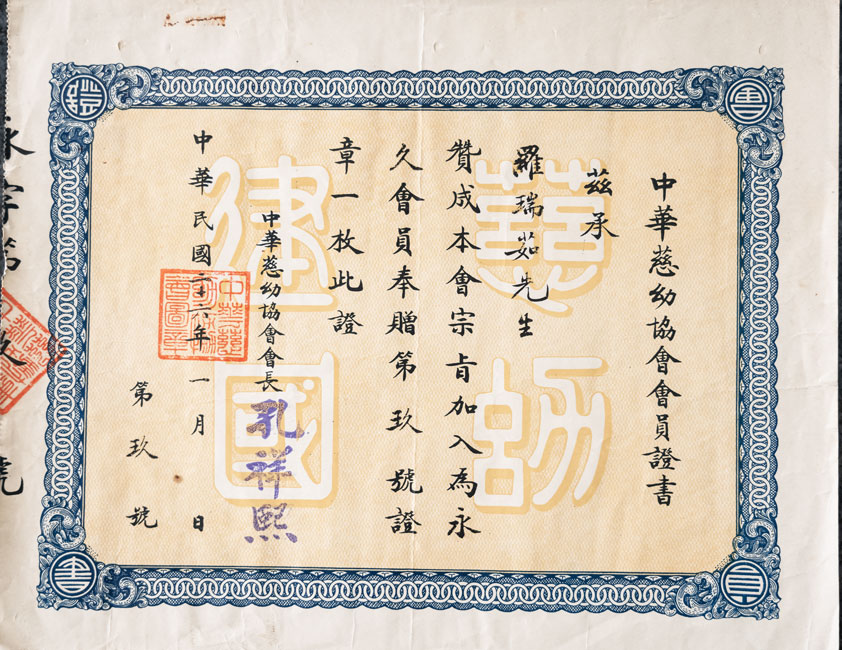 中華慈幼協會會員證書
茲承
羅瑞茹先生
贊成本會宗旨加入為永
久會員奉贈第玖號證
章一枚此證
中華慈幼協會會長
孔祥熙
中華民國二十六年一月 日
第玖號
慈幼
建國
永字第玖號